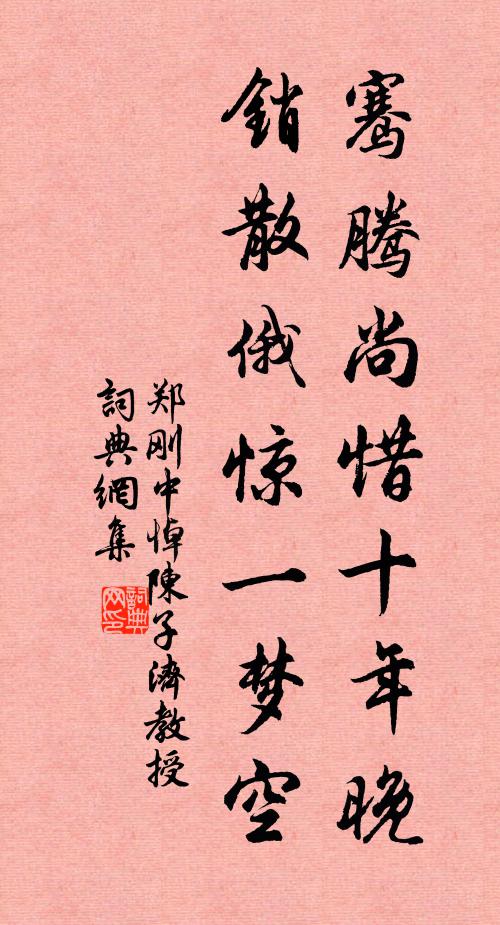 骞腾尚惜十年晚
銷散俄惊一梦空
郑刚中悼陳子濟教授
詞典網集
詞典网印